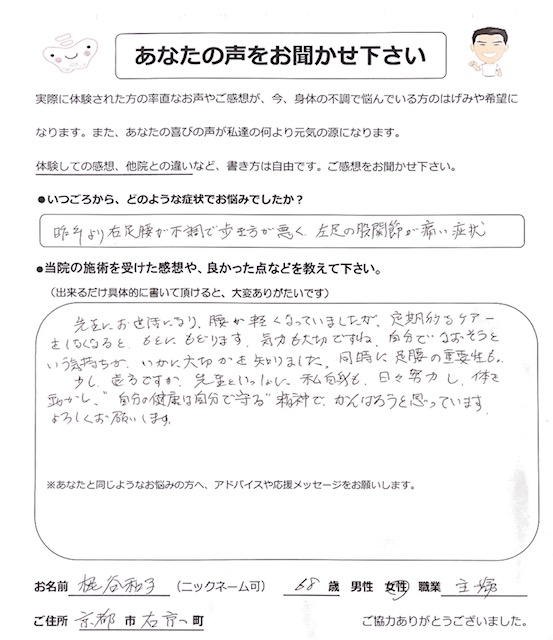 あなたの声をお聞かせ下さい
実際に体験された方の率直なお声やご感想が、今、身体の不調で悩んでいる方のはげみや希望に
なります。また、あなたの喜びの声が私達の何より元気の源になります。
体験しての感想、他院との違いなど、書き方は自由です。ご感想をお聞かせ下さい。
●いつごろから、どのような症状でお悩みでしたか？
昨年より右足腰が不調で歩き方が悪く、左足の股関節が痛い症状
●当院の施術を受けた感想や、良かった点などを教えて下さい。
（出来るだけ具体的に書いて頂けると、大変ありがたいです）
先生にお世話になり、腰が軽くなっていましたが、定期的なケアー
をしなくなると、もとにもどります。気力も大切ですね、自分でなおそうと
いう気持ちが、いかに大切かを知りました。同時に足腰の重要性も。
少し、遠るですが、先生といっしょに私自身も、日々努力し、体を
動かし、"自分の健康は自分で守る"精神で、がんばろうと思っています
よろしくお願いします。
※あなたと同じようなお悩みの方へ、アドバイスや応援メッセージをお願いします。
お名前 梶谷和子 （ニックネーム可） 68 歳 男性 女性 職業 主婦
ご住所 京都 市 右京 町 ご協力ありがとうございました。